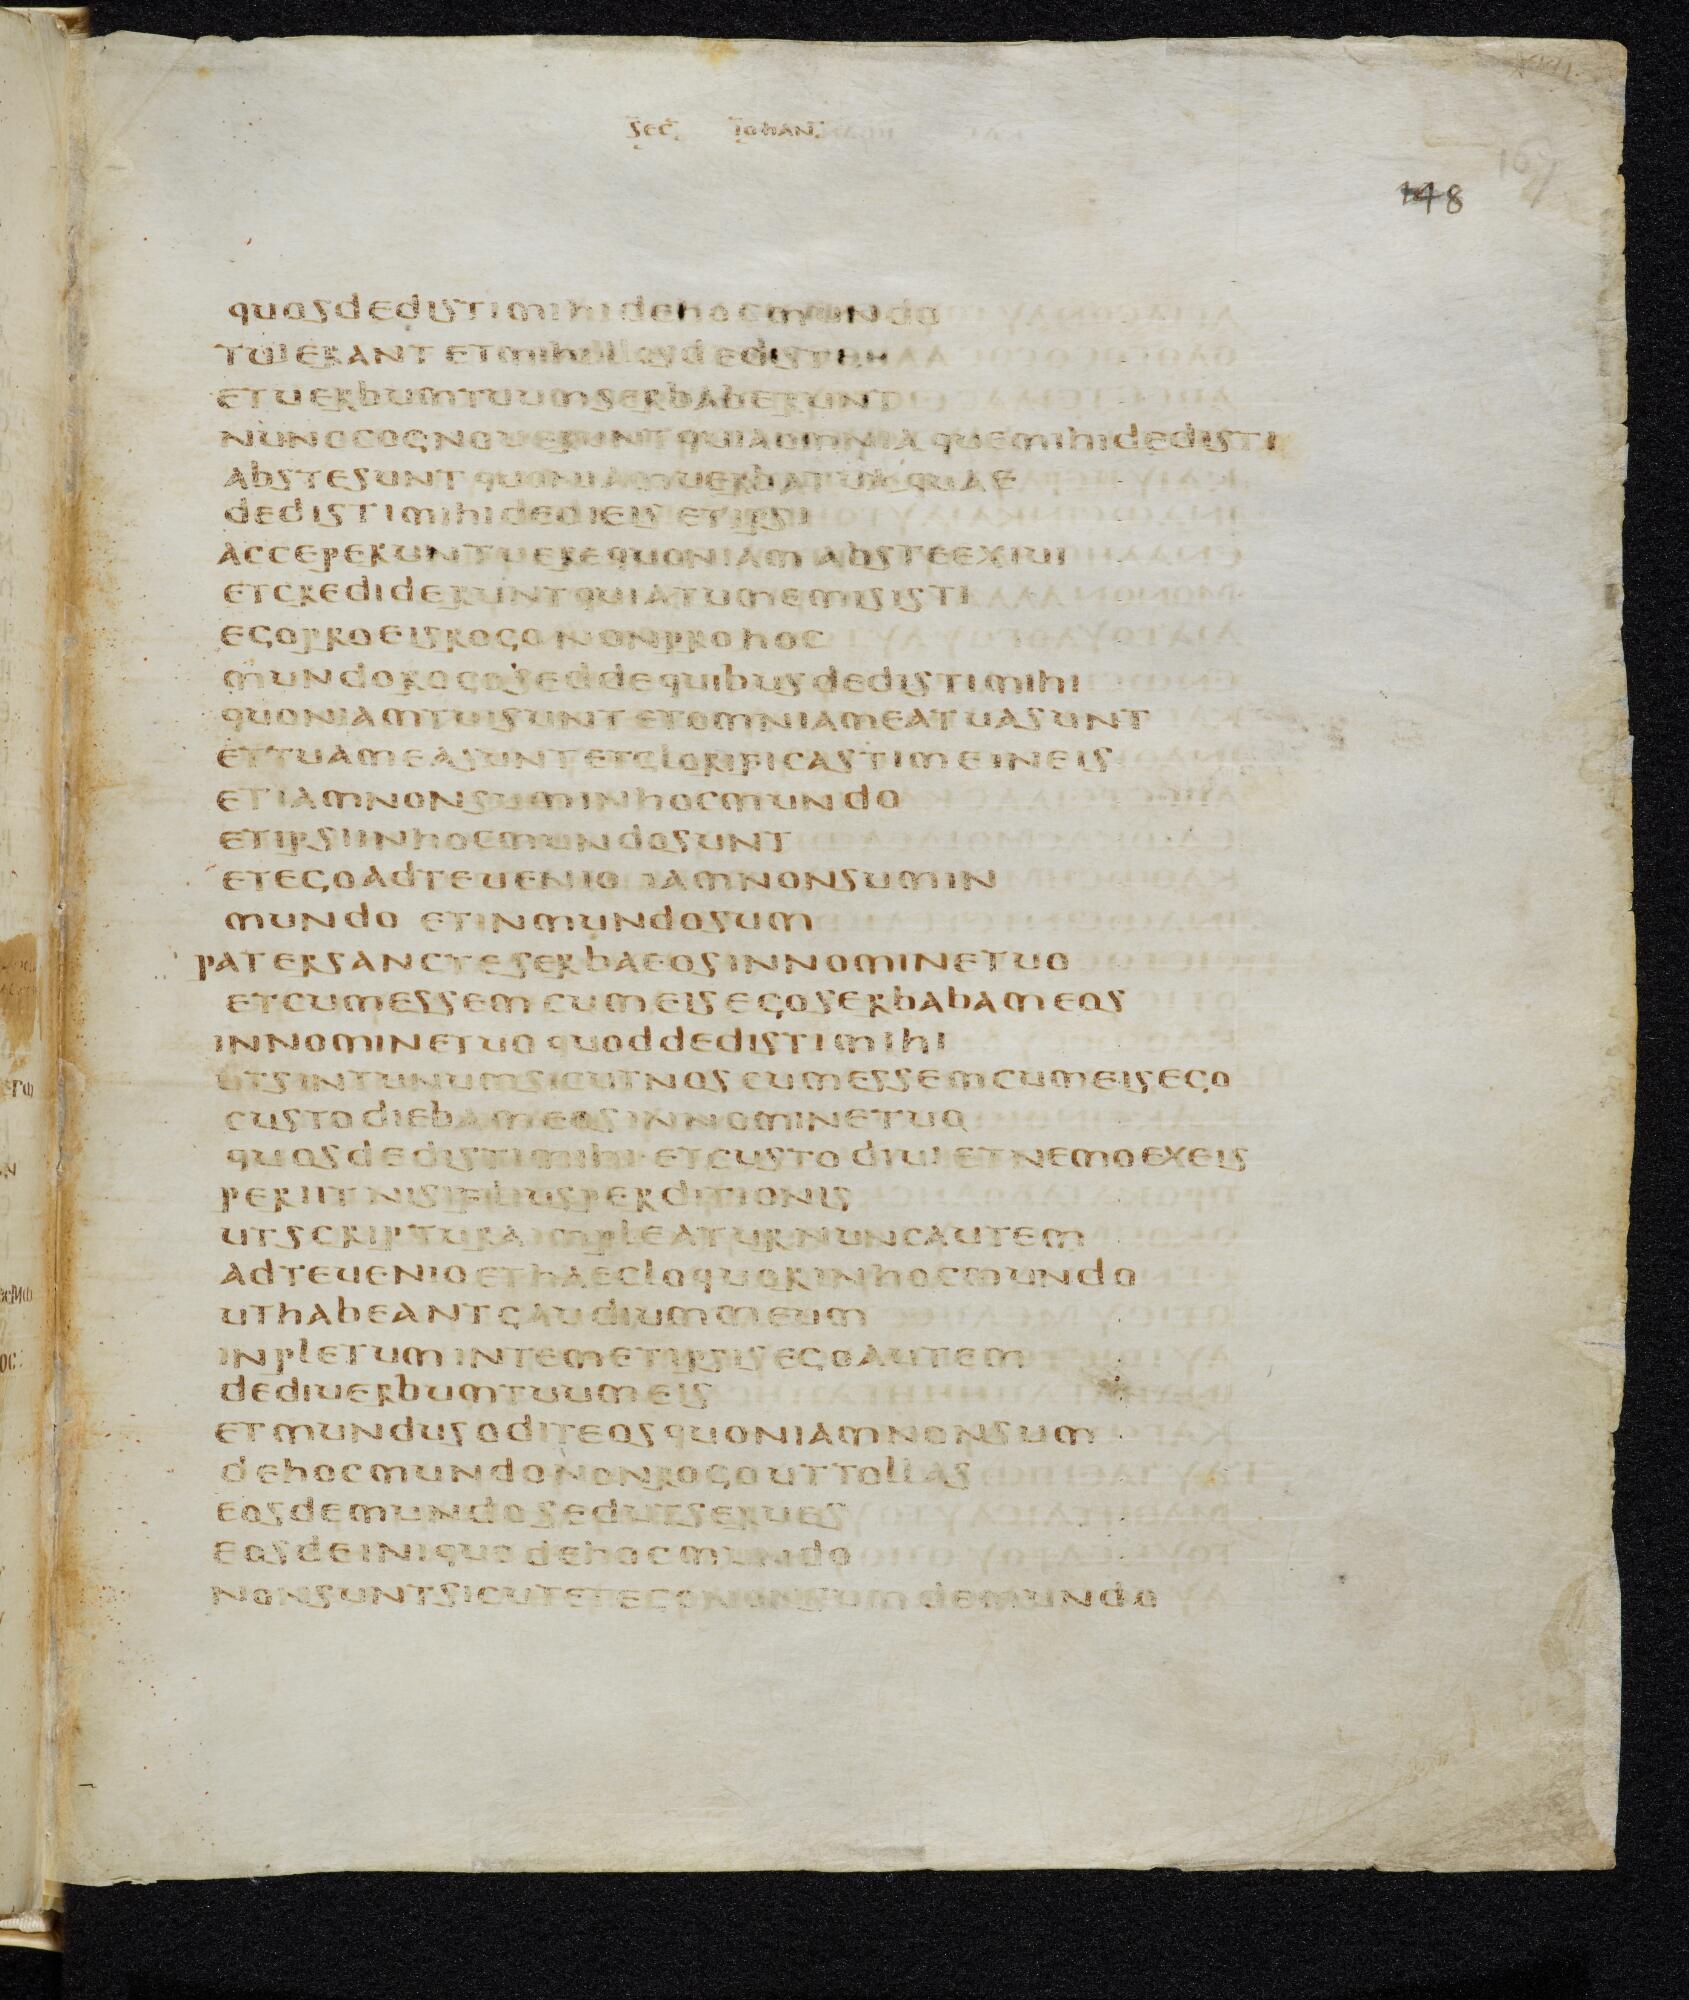 sec iohan
148
quosdedistimihidehocmundo
tuierantetmihiillosdedisti
etuerbumtuumserbaberunt
nunccognoueruntquiaomniaquemihidedisti
abstesuntquoniamuerbatuaquae
dedistimihidedieisetipsi
acceperuntuerequoniamabsteexiui
etcredideruntquiatumemisisti
egoproeisrogononprohoc
mundorogoseddequibusdedistimihi
quoniamtuisuntetomniameatuasunt
ettuameasuntetclorificastimeineis
etiamnonsuminhocmundo
etipsiinhocmundosunt
etegoadteuenio iamnonsumin
mundo etinmundosum
patersancteserbaeosinnominetuo
etcumessemcumeisegoserbabameos
innominetuo quoddedistimihi
utsintunumsicutnos cumessemcumeisego
custodiebameosinnominetuo
quosdedistimihi·etcustodiuietnemoexeis
periitnisifiliusperditionis
utscripturaimpleaturnuncautem
adteuenioethaecloquorinhocmundo
uthabeantgaudiummeum
inpletumintemetipsisegoautem
dediuerbumtuumeis
etmundusoditeosquoniamnonsum
dehocmundononrogouttollas
eosdemundosedutserues
eosdeiniquo dehocmundo
nonsuntsicutetegononsumdemundo